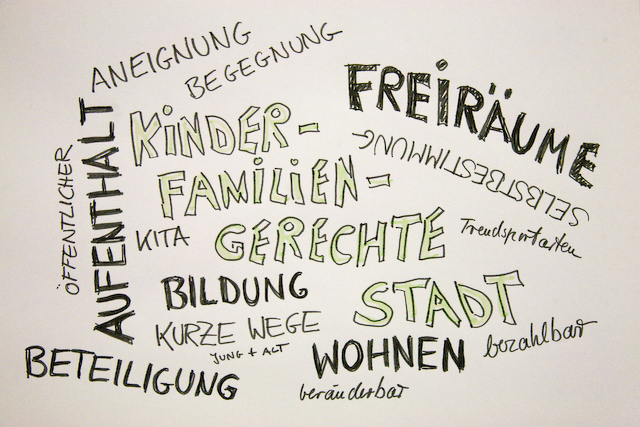 ANEIGNUNG
BEGEGNUNG
FREIRÄUME
SELBSTBESTIMMUNG
KINDER-
FAMILIEN-
GERECHTE
STADT
ÖFFENTLICHER
AUFENTHALT
KITA
Trendsportarten
BILDUNG
KURZE WEGE
JUNG + ALT
WOHNEN
bezahlbar
veränderbar
BETEILIGUNG